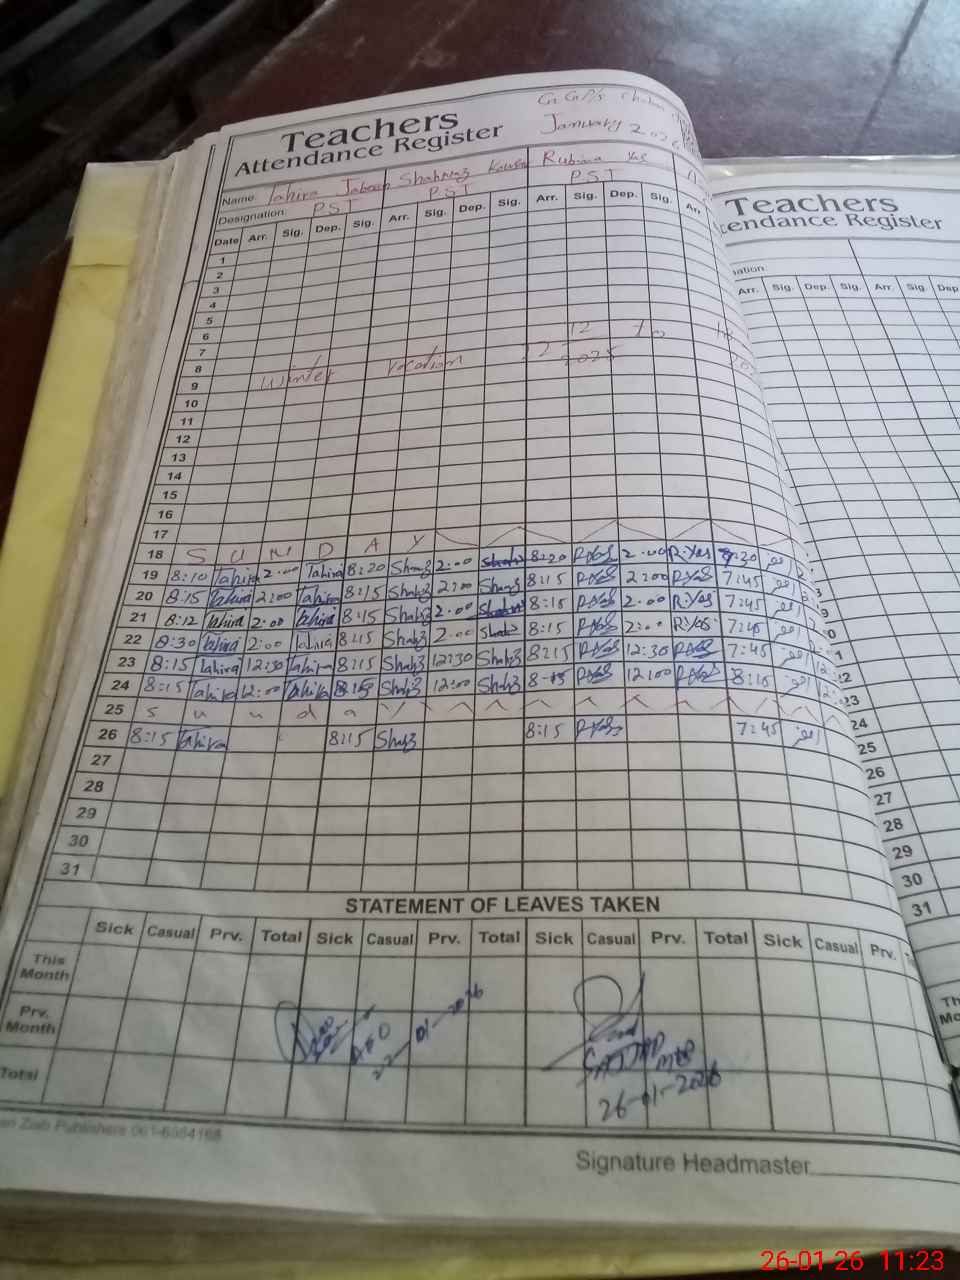 G.G.P/S
January 2026
Teachers
Attendance Register
Name: Tahira Jabeen Shahnaz Kousar Rubina Yas
Designation: P.S.T P.S.T P.S.T
Date Arr. Sig. Dep. Sig. Arr. Sig. Dep. Sig. Arr. Sig. Dep. Sig. Arr
1
2
3
4
5
6
7
8 Winter Vocation 22 12 2025 To
9
10
11
12
13
14
15
16
17
18 S U N D A Y
19 8:10 Tahira 2:00 Tahira 8:20 Shahz 2:00 8:20 RYas 2:00 R.Yas 7:30
20 8:15 Tahira 2:00 Tahira 8:15 Shahz 2:00 Shahz 8:15 RYas 2:00 RYas 7:45
21 8:12 Tahira 2:00 Tahira 8:15 Shahz 2:00 8:15 RYas 2:00 R.Yas 7:45
22 8:30 Tahira 2:00 Tahira 8:15 Shahz 2:00 Shahz 8:15 RYas 2:00 R.Yas 7:45
23 8:15 Tahira 12:30 Tahira 8:15 Shahz 12:30 Shahz 8:15 RYas 12:30 RYas 7:45
24 8:15 Tahira 12:00 Tahira 8:15 Shahz 12:00 Shahz 8:15 RYas 12:00 RYas 8:15
25 S u n d a y
26 8:15 Tahira 8:15 Shahz 8:15 RYas 7:45
27
28
29
30
31
STATEMENT OF LEAVES TAKEN
Sick Casual Prv. Total Sick Casual Prv. Total Sick Casual Prv. Total Sick Casual Prv.
This Month
Prv. Month
Total
AEO
22-01-2026
SAJJAD
26-01-2026
Publishers 061-6564168
Signature Headmaster
Teachers
Attendance Register
Arr. Sig. Dep. Sig. Arr. Sig. Dep
22
23
24
25
26
27
28
29
30
31
26-01-26 11:23